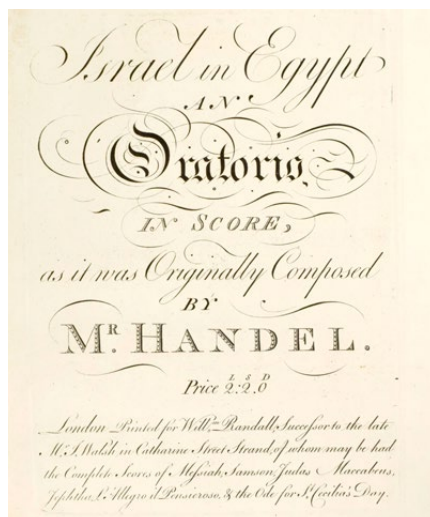 Israel in Egypt
AN
Oratorio,
IN SCORE,
as it was Originally Composed
BY
MR. HANDEL.
L S D
Price 2:2.0
London Printed for Will.m Randall, Successor to the late
Mr. I. Walsh in Catharine Street Strand, of whom may be had
the Complete Scores of Messiah, Samson, Judas Maccabeus,
Jephtha, L'Allegro il Pensieroso, & the Ode for St. Cecilia's Day.